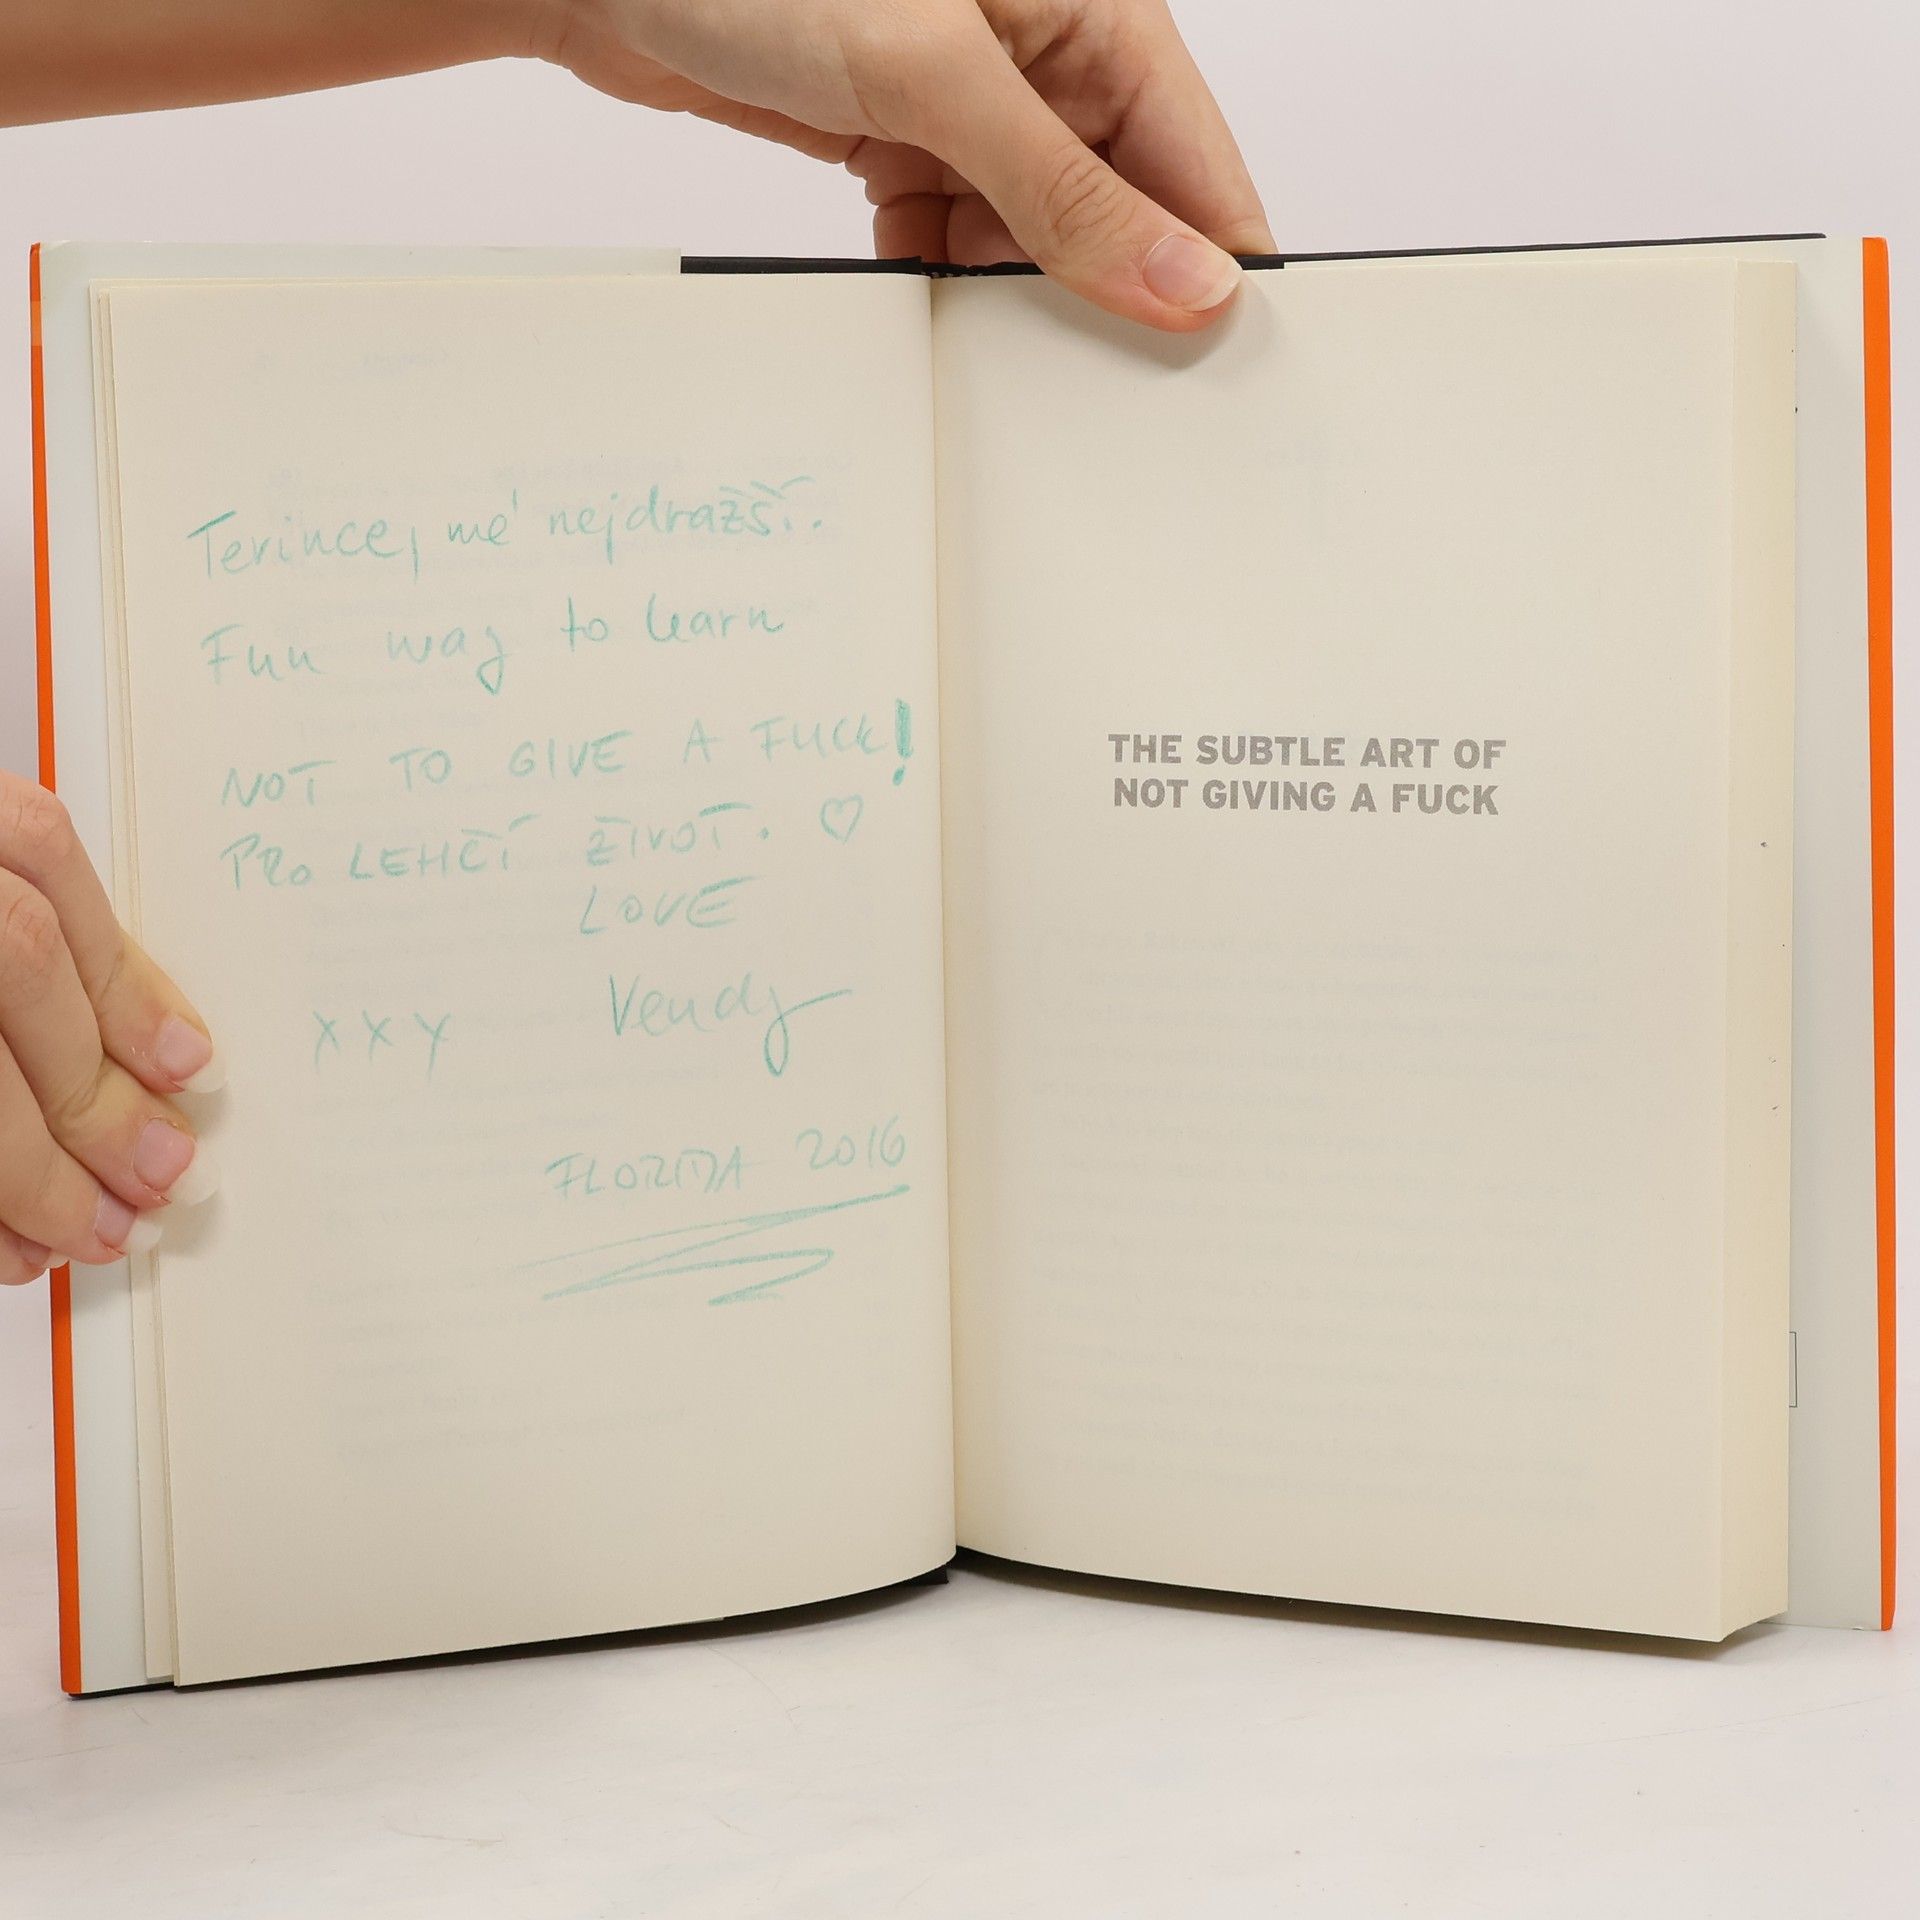 Terince, mé nejdražší.
Fun way to learn
NOT TO GIVE A FUCK!
PRO LEHČÍ ŽIVOT. ♡
LOVE
Vendy
x x x
FLORIDA 2016
THE SUBTLE ART OF
NOT GIVING A FUCK